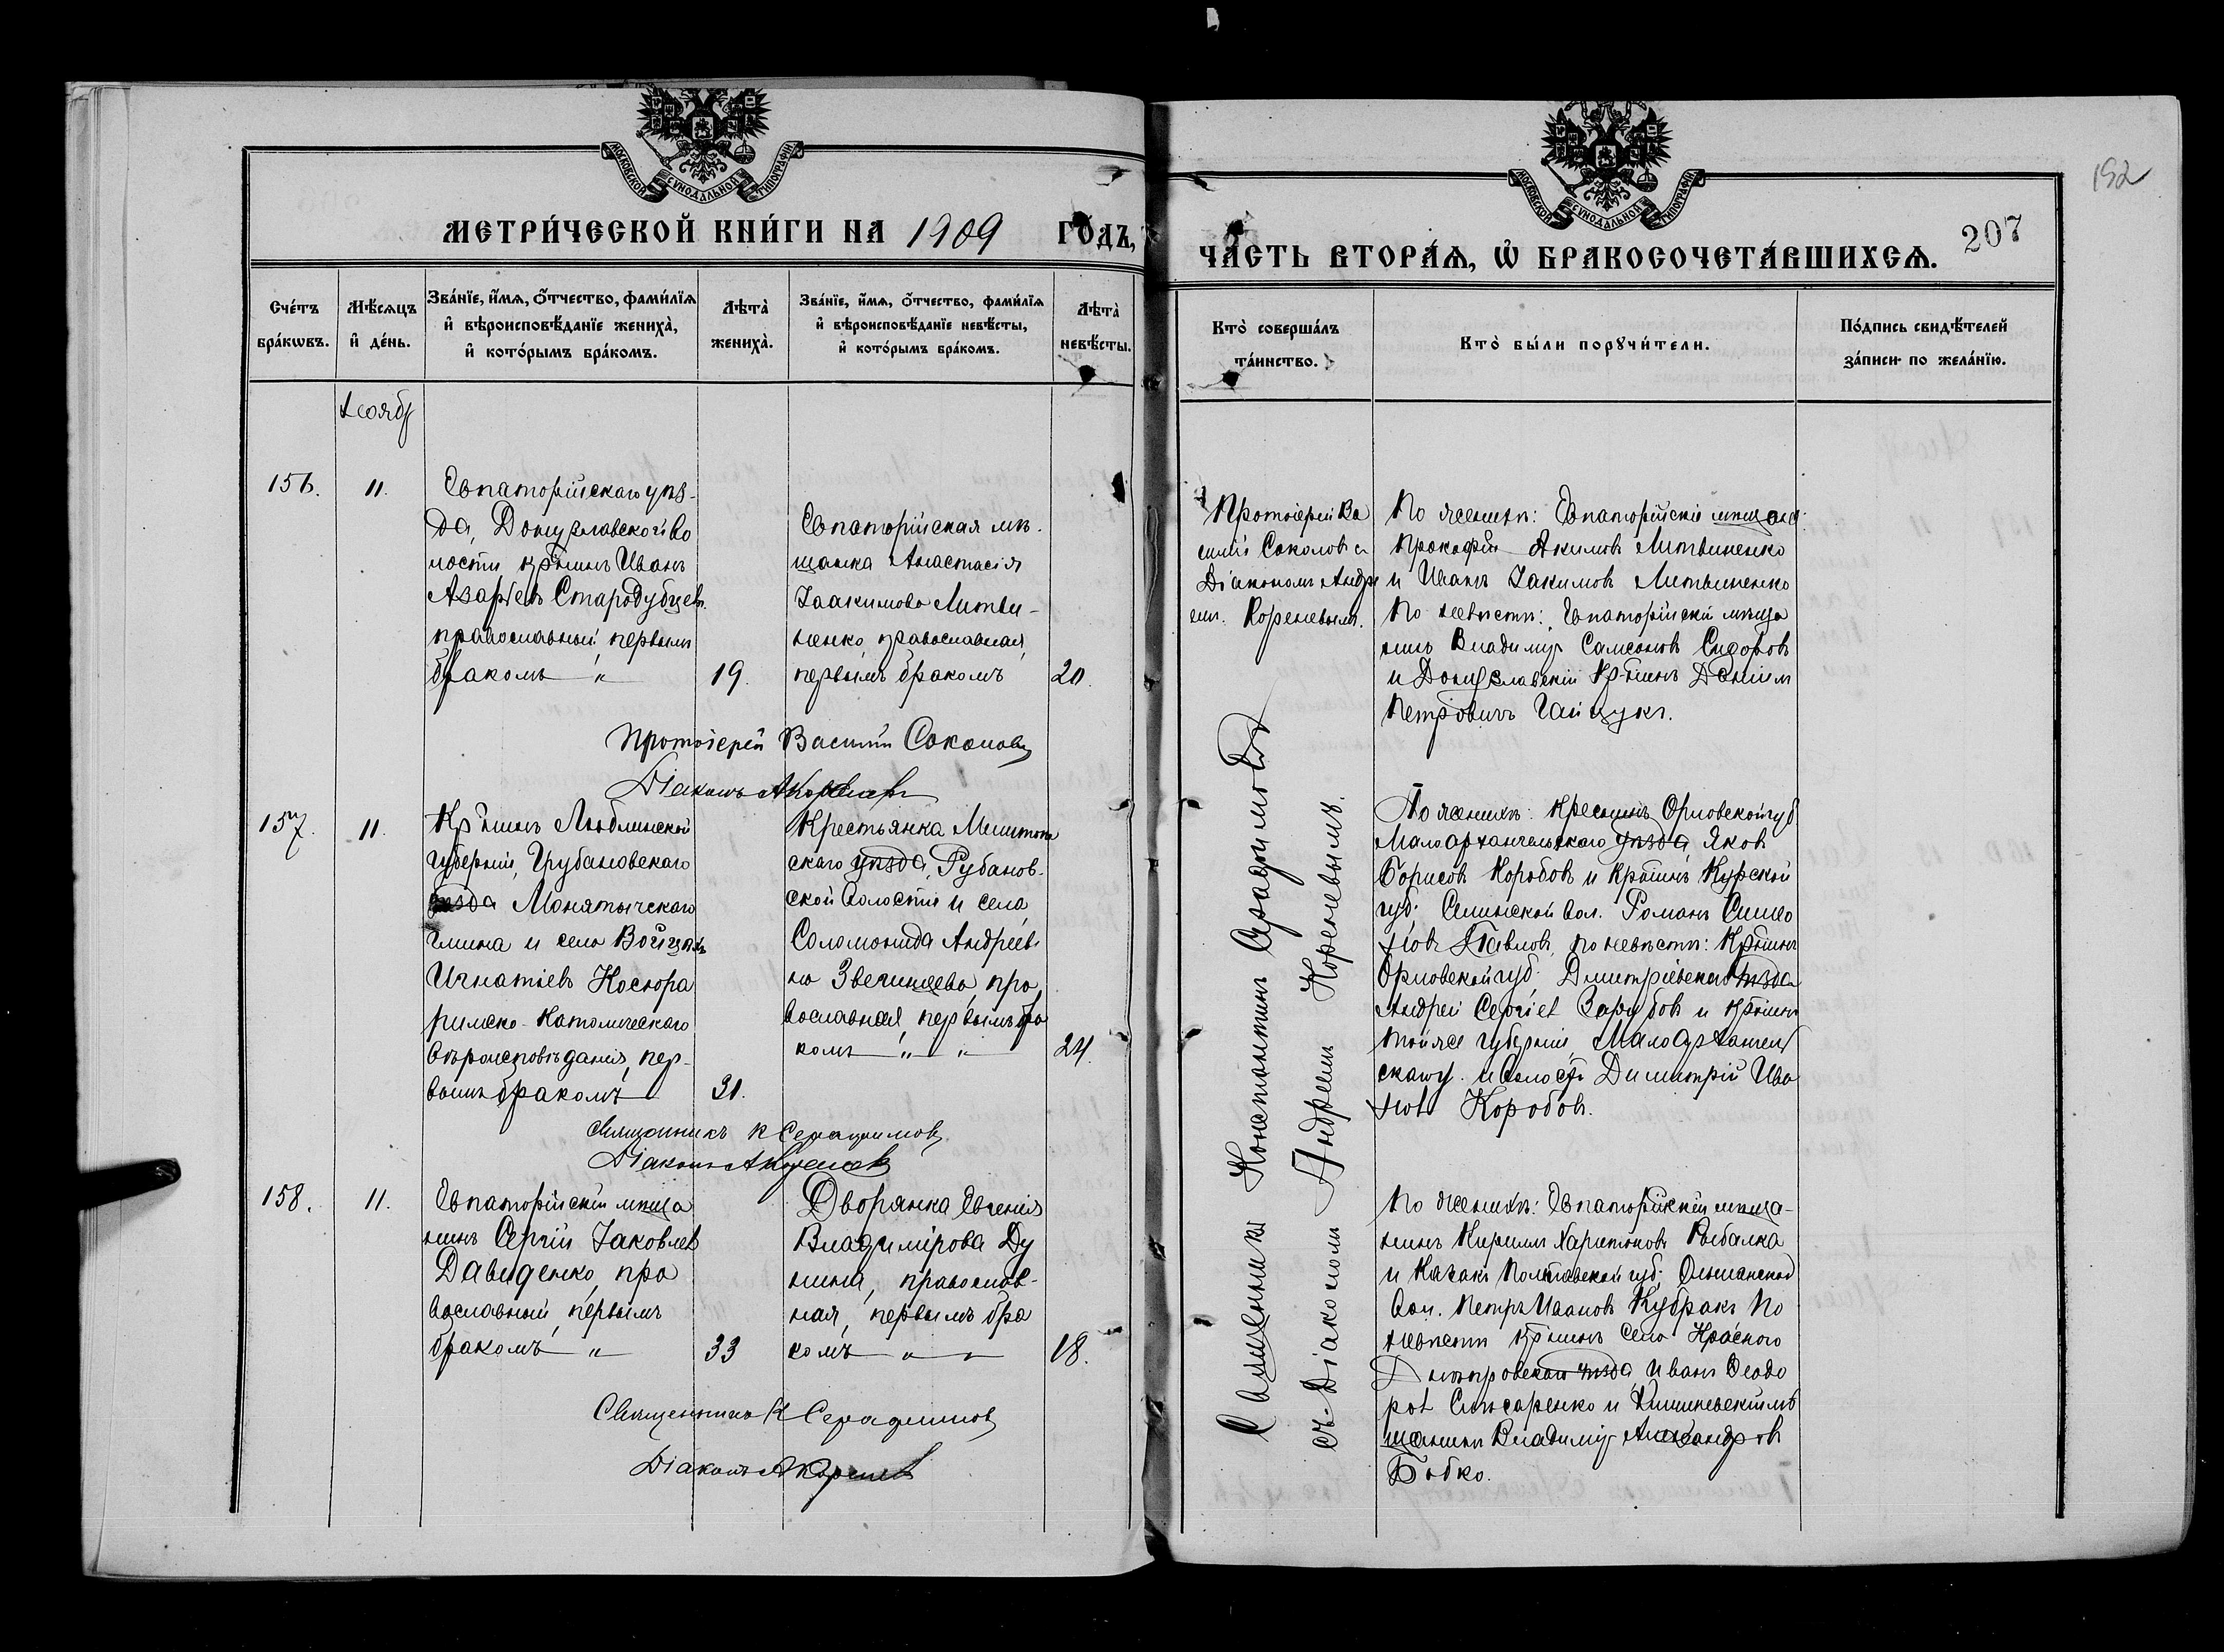 МОСКОВСКОЙ СУНОДАЛЬНОЙ ТИПОГРАФІИ
МЕТРИ́ЧЕСКОЙ КНИ́ГИ НА 1909 ГО́ДЪ,
Сче́тъ бра́кѡвъ.
Мѣ́сѧцъ и҆ де́нь.
Зва́нїе, и҆́мѧ, ѻ҆́тчество, фами́лїѧ
и҆ вѣроисповѣ́данїе жениха̀,
и҆ кото́рымъ бра́комъ.
Лѣта̀ жениха̀.
Зва́нїе, и҆́мѧ, ѻ҆́тчество, фами́лїѧ
и҆ вѣроисповѣ́данїе невѣ́сты,
и҆ кото́рымъ бра́комъ.
Лѣта̀ невѣ́сты.
Ноябр
156.
11.
Евпаторійскаго уѣз-
да, Донузлавской во
лости кр-нинъ Иванъ
Азаріевъ Стародубцевъ.
православный, первымъ
бракомъ "
19.
Евпаторійская мѣ-
щанка Анастасія
Іоакимова Литви-
ненко, православная,
первымъ бракомъ
20.
Протоіерей Василій Соколовъ
Діаконъ А Кореневъ
157.
11.
Кр-нинъ Люблинской
губерніи, Грубешовскаго
уѣзда Монятычскаго
гмина и села Войцехъ
Игнатіевъ Костюра
римско-католическаго
вѣроисповѣданія, пер-
вымъ бракомъ
31.
Крестьянка Мелитополь
скаго уѣзда, Рубанов-
ской волости и села,
Соломонида Андреев
на Звегинцева, пра
вославная, первымъ бра
комъ " "
24.
Священникъ К Серафимовъ
Діаконъ А Кореневъ
158.
11.
Евпаторійскій мѣща
нинъ Сергій Іаковлев
Давиденко, пра
вославный, первымъ
бракомъ "
33
Дворянка Евгенія
Владимірова Ду
нина, православ-
ная, первымъ бра
комъ " "
18.
Священникъ К Серафимовъ
Діаконъ А Кореневъ
МОСКОВСКОЙ СУНОДАЛЬНОЙ ТИПОГРАФІИ
192
207
ЧА́СТЬ ВТОРА́Ѧ, Ѡ҆ БРАКОСОЧЕТА́ВШИХСѦ.
Кто̀ соверша́лъ та́инство.
Кто̀ бы́ли порꙋчи́тели.
По́дпись свидѣ́телей за́писи по жела́нїю.
Протоіерей Ва
силій Соколовъ съ
Діакономъ Андре
емъ Кореневымъ.
По женихѣ: Евпаторійскіе мѣщане
Прокофій Акимовъ Литвиненко
и Иванъ Іакимовъ Литвиненко
По невѣстѣ: Евпаторійскій мѣща
нинъ Владиміръ Самсоновъ Сидоровъ
и Донузлавскій кр-нинъ Даніилъ
Петровичъ Гайдукъ.
Священникъ Константинъ Серафимовъ
съ Діакономъ Андреемъ Кореневымъ.
По женихѣ: крест-нинъ Орловской губ
Малоархангельскаго уѣзда Яковъ
Борисовъ Коробовъ и кр-нинъ Курской
губ; вол. Романъ Симео
новъ Павловъ, по невѣстѣ: Кр-нинъ
Орловской губ; Дмитріевскаго уѣзда
Андрей Сергіев Зарубов и кр-нинъ
той же губерніи, Малоархангель
скаго у. и волости Димитрій Ива
нов Коробовъ.
По женихѣ: Евпаторійскій мѣща-
нинъ Кириллъ Харитоновъ Рыбалка
и Казакъ Полтавской губ; Ольшанской
вол. Петръ Ивановъ Кубракъ По
невѣстѣ кр-нинъ села Краснаго
Днѣпровскаго уѣзда Иванъ Феодо
ров Слюсаренко и Кишиневскій мѣ
щанинъ Владиміръ Александровъ
Бобко.